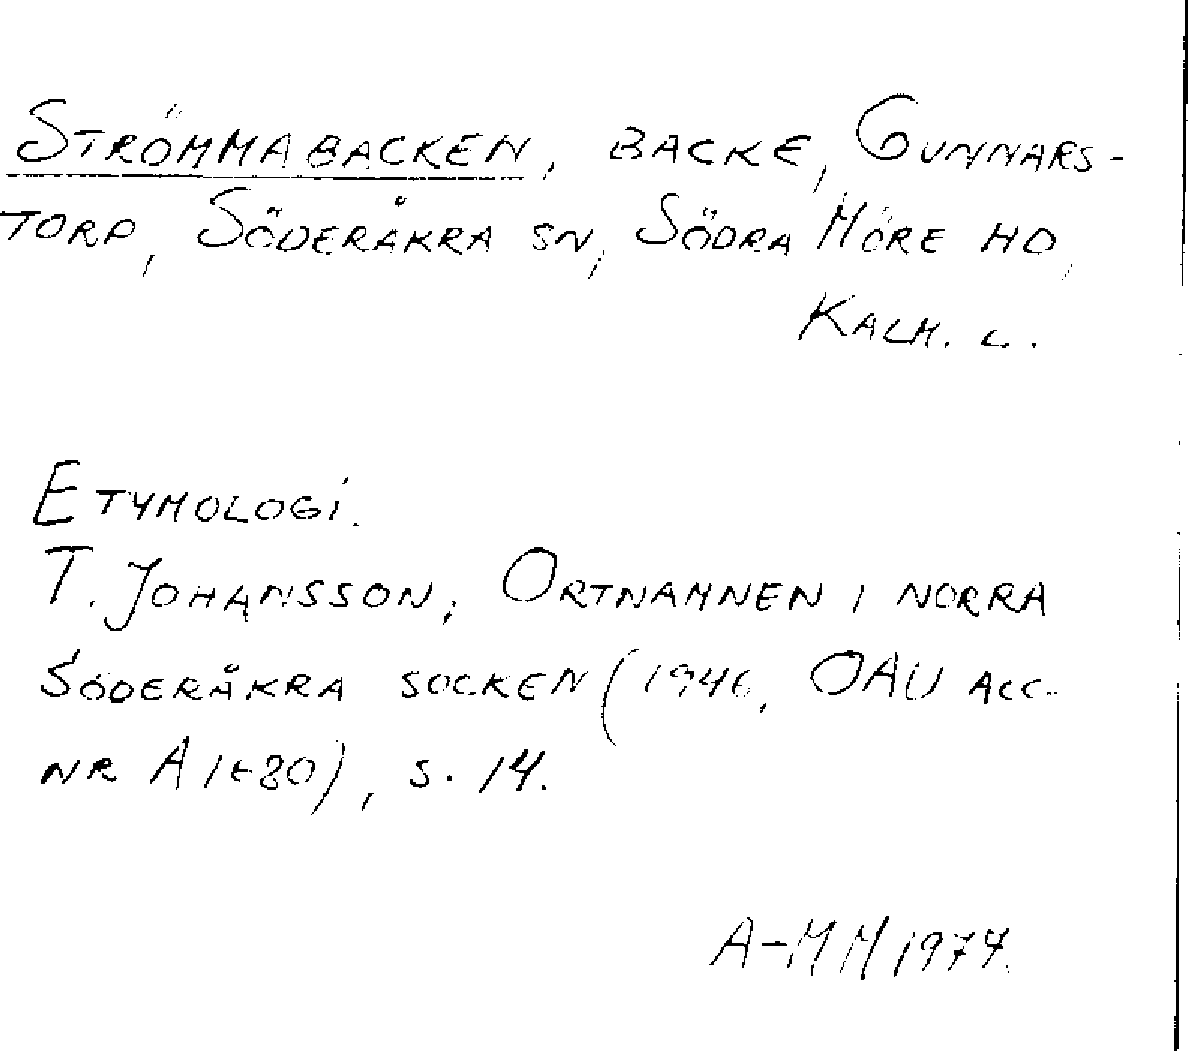 STRÖMMABACKEN, BACKE, GUNNARS-
TORP, SÖDERÅKRA SN, SÖDRA MÖRE HD,
KALM. L.
ETYMOLOGI.
T. JOHANSSON, ORTNAMNEN I NORRA
SÖDERÅKRA SOCKEN (1946, OAU ACC.
NR), S. 14.
A-MM 1974.